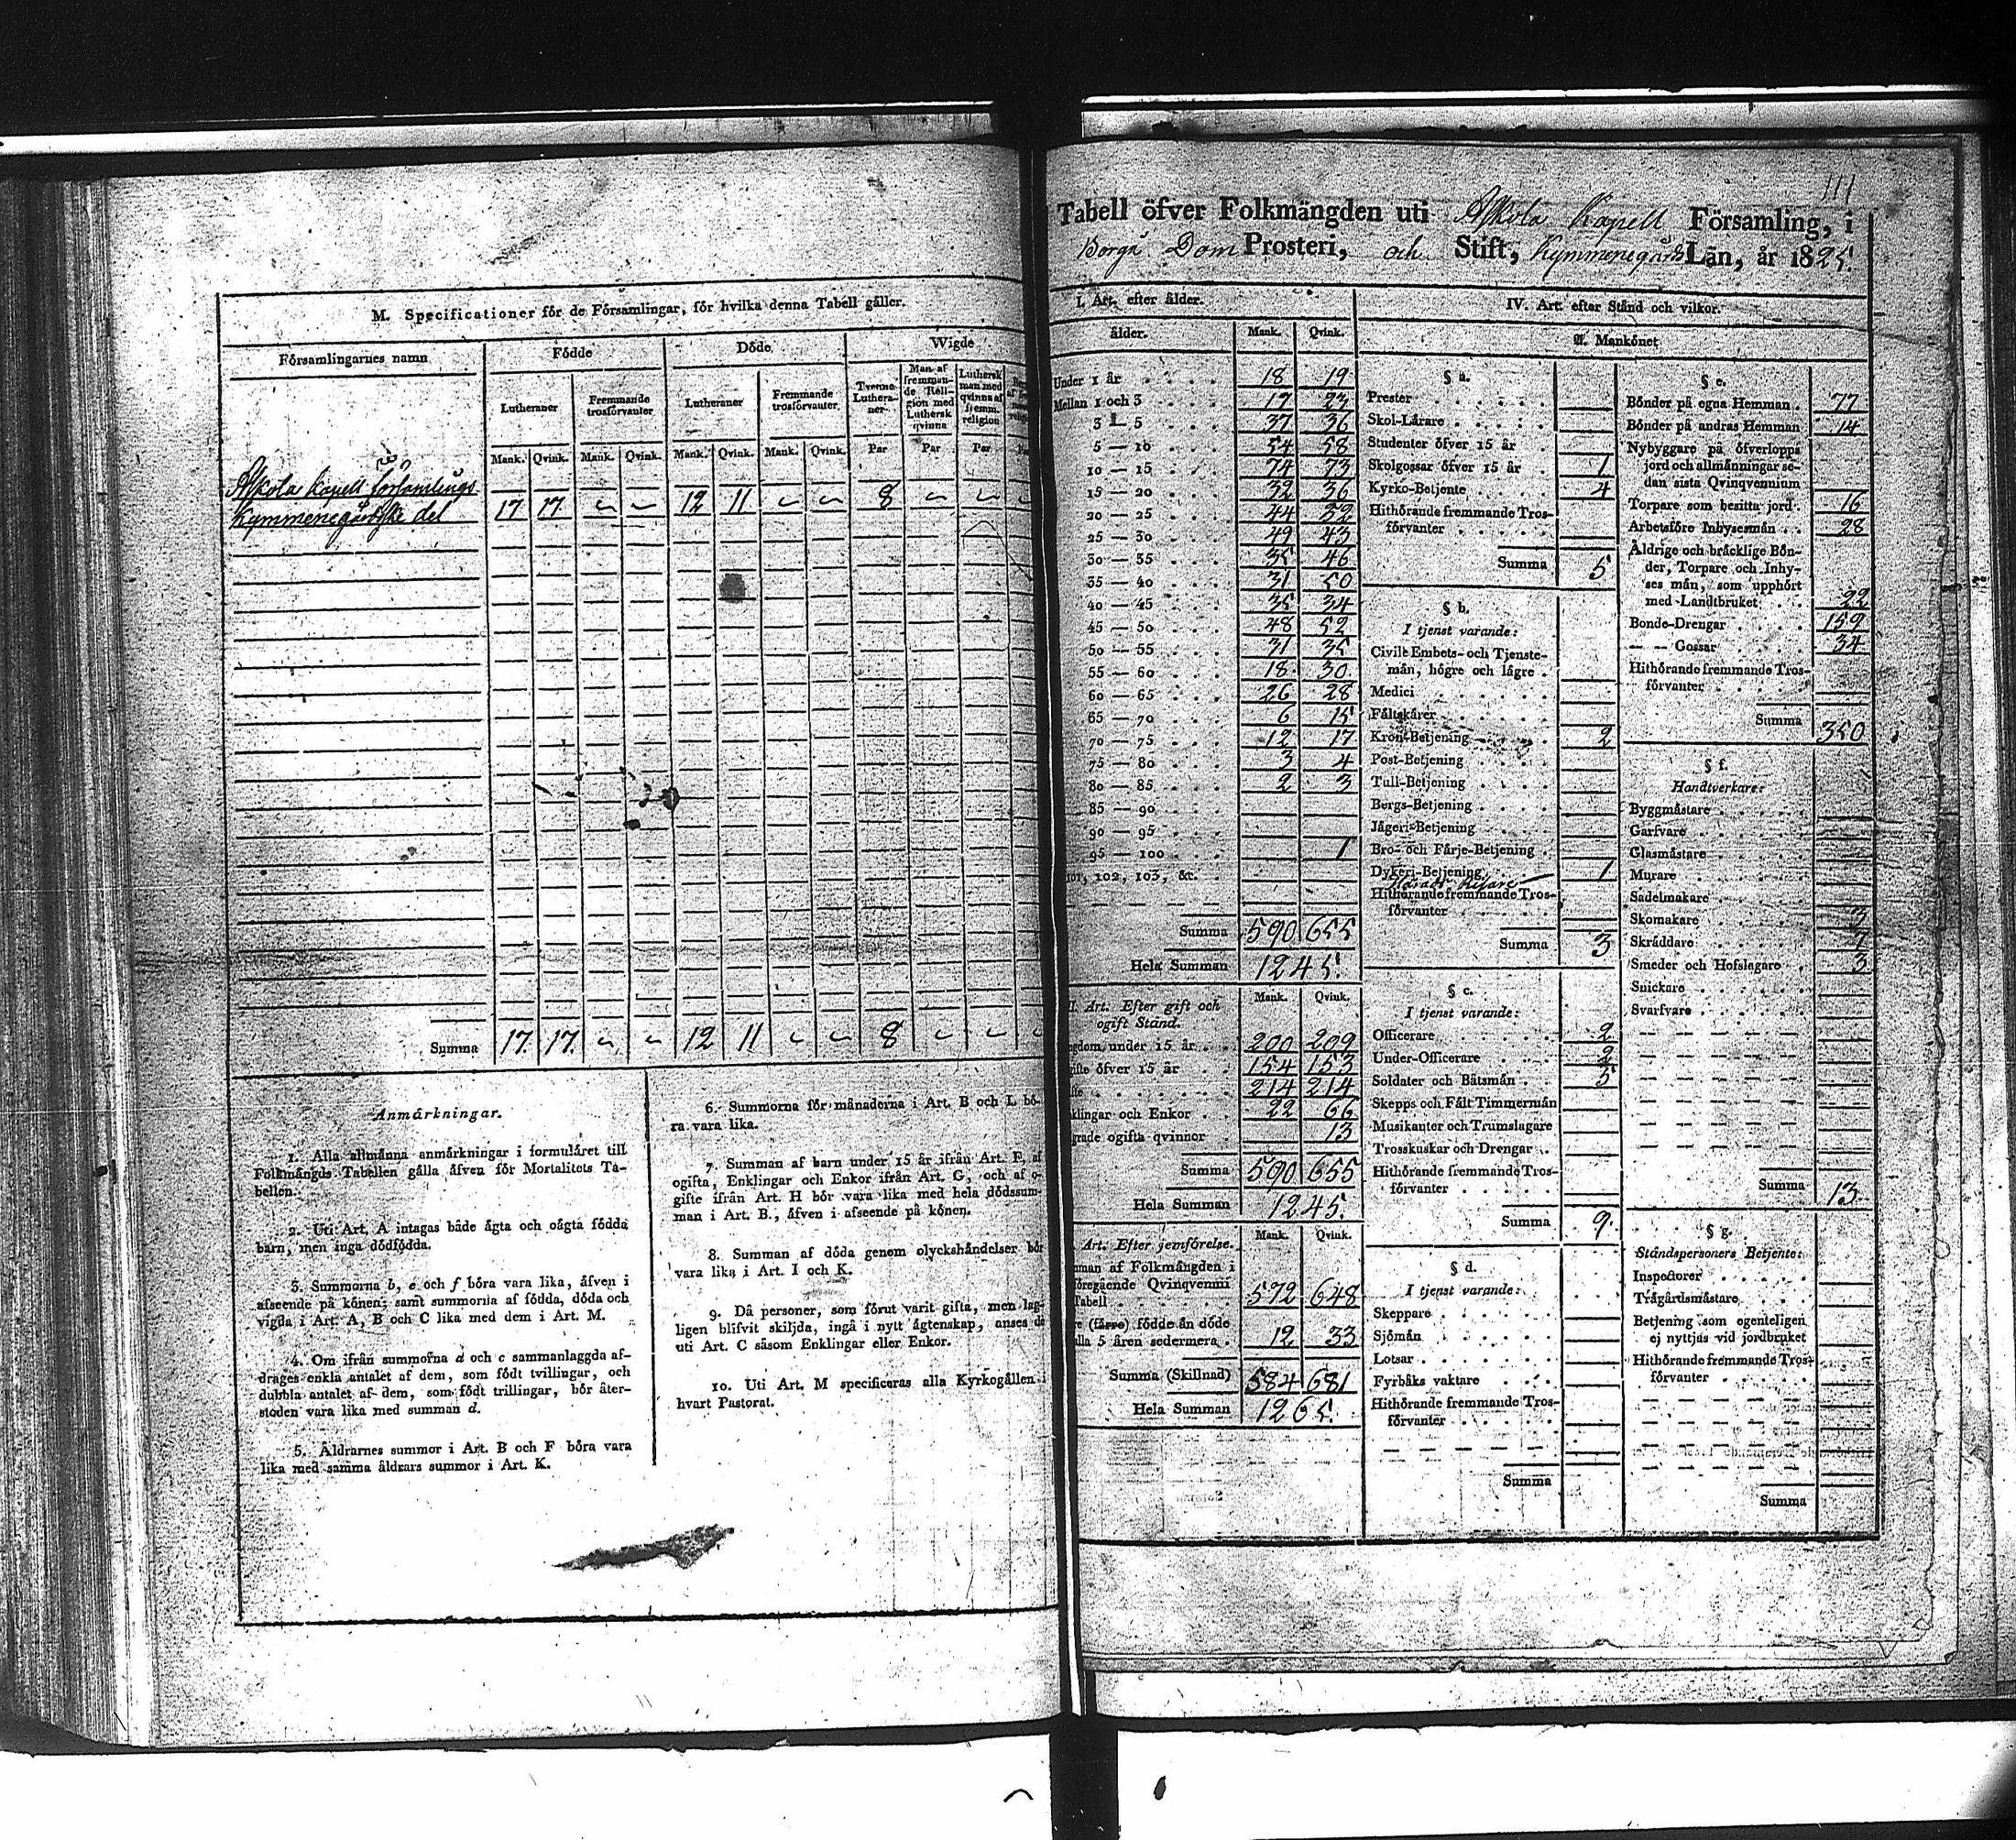 M. Specificationer för de Församlingar, för hvilka denna Tabell gäller.
Församlingarnes namn
Födde
Döde
Wigde
Lutheraner
Fremmande trosförvanter
Lutheraner
Fremmande trosförvanter.
Tvenne Lutheraner
Man af fremmande Religion med Luthersk qvinna
Luthersk man med qvinna af fremm. religion
Mank. Qvink. Mank. Qvink. Mank. Qvink. Mank. Qvink. Par Par Par
Askola Kapell församlings
Kymmenegårdske del 17 17 12 11 8
Summa 17. 17. 12 11 8
Anmärkningar.
1. Alla allmänna anmärkningar i formuläret till
Folkmängds Tabellen gälla äfven för Mortalitets Ta-
bellen.
2. Uti Art. A intagas både ägta och oägta födda
barn, men inga dödfödda.
3. Summorna b, e och f böra vara lika, äfven i
afseende på könen; samt summorna af födda, döda och
vigda i Art. A, B och C lika med dem i Art. M.
4. Om ifrån summorna d och c sammanlaggda af-
drages enkla antalet af dem, som födt tvillingar, och
dubbla antalet af dem, som födt trillingar, bör åter-
stoden vara lika med summan d.
5. Åldrarnes summor i Art. B och F böra vara
lika med samma åldrars summor i Art. K.
6. Summorna för månaderna i Art. B och L bö-
ra vara lika.
7. Summan af barn under 15 år ifrån Art. F, af
ogifta, Enklingar och Enkor ifrån Art. G, och af o-
gifte ifrån Art. H bör vara lika med hela dödssum-
man i Art. B., äfven i afseende på könen.
8. Summan af döda genom olyckshändelser bör
vara lika i Art. I och K.
9. Då personer, som förut varit gifta, men lag-
ligen blifvit skiljda, ingå i nytt ägtenskap, anses de
uti Art. C såsom Enklingar eller Enkor.
10. Uti Art. M specificeras alla Kyrkogällen i
hvart Pastorat.
111
Tabell öfver Folkmängden uti Askola Kapell Församling, i
Borgå Dom Prosteri, och Stift, Kymmenegårds Län, år 1825.
I. Art. efter ålder.
ålder. Mank. Qvink.
Under 1 år 18 19
Mellan 1 och 3 17 23
3 — 5 37 36
5 — 10 54 58
10 — 15 74 73
15 — 20 32 36
20 — 25 44 32
25 — 30 49 43
30 — 35 35 46
35 — 40 31 50
40 — 45 35 34
45 — 50 48 52
50 — 55 31 35
55 — 60 18 30
60 — 65 26 28
65 — 70 6 15
70 — 75 12 17
75 — 80 3 4
80 — 85 2 3
85 — 90
90 — 95
95 — 100 1
101, 102, 103, &c.
Summa 590 655
Hela Summan 1245.
Art. Efter gift och
ogift Stånd.
Mank. Qvink.
under 15 år 200 209
öfver 15 år 154 153
214 214
och Enkor 22 66
ogifta qvinnor 13
Summa 590 655
Hela Summan 1245.
Art. Efter jemförelse. Mank. Qvink.
af Folkmängden i
Qvinqvennii
Tabell 572 648
(färre) födde än döde
5 åren sedermera 12 33
Summa (Skillnad) 584 681
Hela Summan 1265.
IV. Art. efter Stånd och vilkor.
A. Mankönet
§ a.
Prester
Skol-Lärare
Studenter öfver 15 år
Skolgossar öfver 15 år 1
Kyrko-Betjente 4
Hithörande fremmande Tros-
förvanter
Summa 5
§ b.
I tjenst varande:
Civile Embets- och Tjenste-
män, högre och lägre
Medici
Fältskärer
Krono-Betjening 2
Post-Betjening
Tull-Betjening
Bergs-Betjening
Jägeri-Betjening
Bro- och Färje-Betjening
Dykeri-Betjening 1
Hithörande fremmande Tros-
förvanter
Summa 3
§ c.
I tjenst varande:
Officerare 2
Under-Officerare 2
Soldater och Båtsmän 5
Skepps och Fält Timmermän
Musikanter och Trumslagare
Trosskuskar och Drengar
Hithörande fremmande Tros-
förvanter
Summa 9.
§ d.
I tjenst varande:
Skeppare
Sjömän
Lotsar
Fyrbåks vaktare
Hithörande fremmande Tros-
förvanter
Summa
§ e.
Bönder på egna Hemman 77
Bönder på andras Hemman 14
Nybyggare på öfverlopps
jord och allmänningar se-
dan sista Qvinqvennium
Torpare som besitta jord 16
Arbetsföre Inhysesmän 28
Äldrige och bräcklige Bön-
der, Torpare och Inhy-
ses män, som upphört
med Landtbruket 22
Bonde-Drengar 159
— — Gossar 34
Hithörande fremmande Tros-
förvanter
Summa 350
§ f.
Handtverkare:
Byggmästare
Garfvare
Glasmästare
Murare
Sadelmakare
Skomakare 3
Skräddare 7
Smeder och Hofslagare 3
Snickare
Svarfvare
Summa 13.
§ g.
Ståndspersoners Betjente:
Inspectorer
Trägårdsmästare
Betjening som egenteligen
ej nyttjas vid jordbruket
Hithörande fremmande Tros-
förvanter
Summa